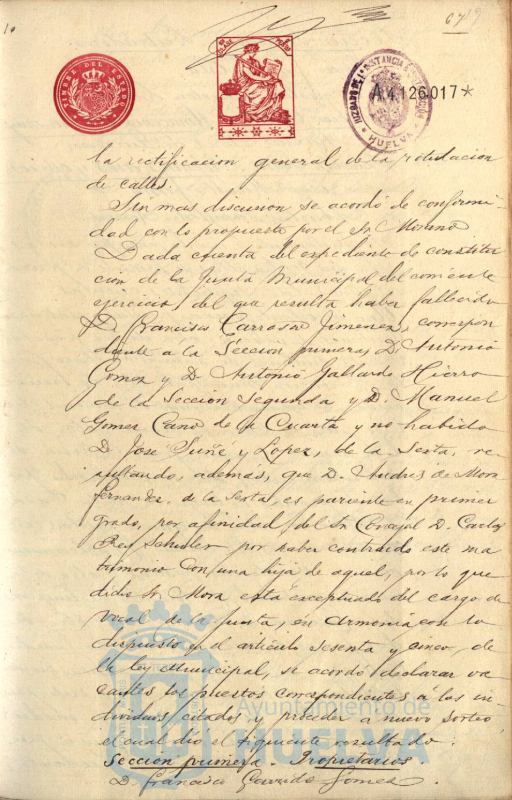 679
TIMBRE DEL ESTADO
A4.126.017*
HUELVA
la rectificacion general de la rotulacion
de calles.
Sin mas discusion se acordó de conformi-
dad con lo propuesto por el Sr. Moreno
Dada cuenta del expediente de constitu-
cion de la Junta Municipal del corriente
ejercicio, del que resulta haber fallecido
D. Francisco Carrasco Jimenez, correspon
diente a la Sección primera, D. Antonio
Gomez y D. Antonio Gallardo Hierro
de la Seccion Segunda y D. Manuel
Gomez Cano de la Cuarta y no habido
D. José Suñé y Lopez, de la Sexta, re-
sultando, además, que D. Andrés de Mora
Fernandez, de la Sexta, es pariente en primer
grado, por afinidad, del Sr. Concejal D. Carlos
Rey por haber contraido este ma
trimonio con una hija de aquel, por lo que
dicho Sr. Mora está exceptuado del cargo de
vocal de la Junta, en armonia con lo
dispuesto en el articulo sesenta y cinco, de
la ley Municipal, se acordó declarar va
cantes los puestos correspondientes á los in-
dividuos citados y proceder a nuevo sorteo
el cual dio el siguiente resultado.
Sección primera - Propietarios
D. Francisco Garrido Gomez.
Ayuntamiento de
HUELVA